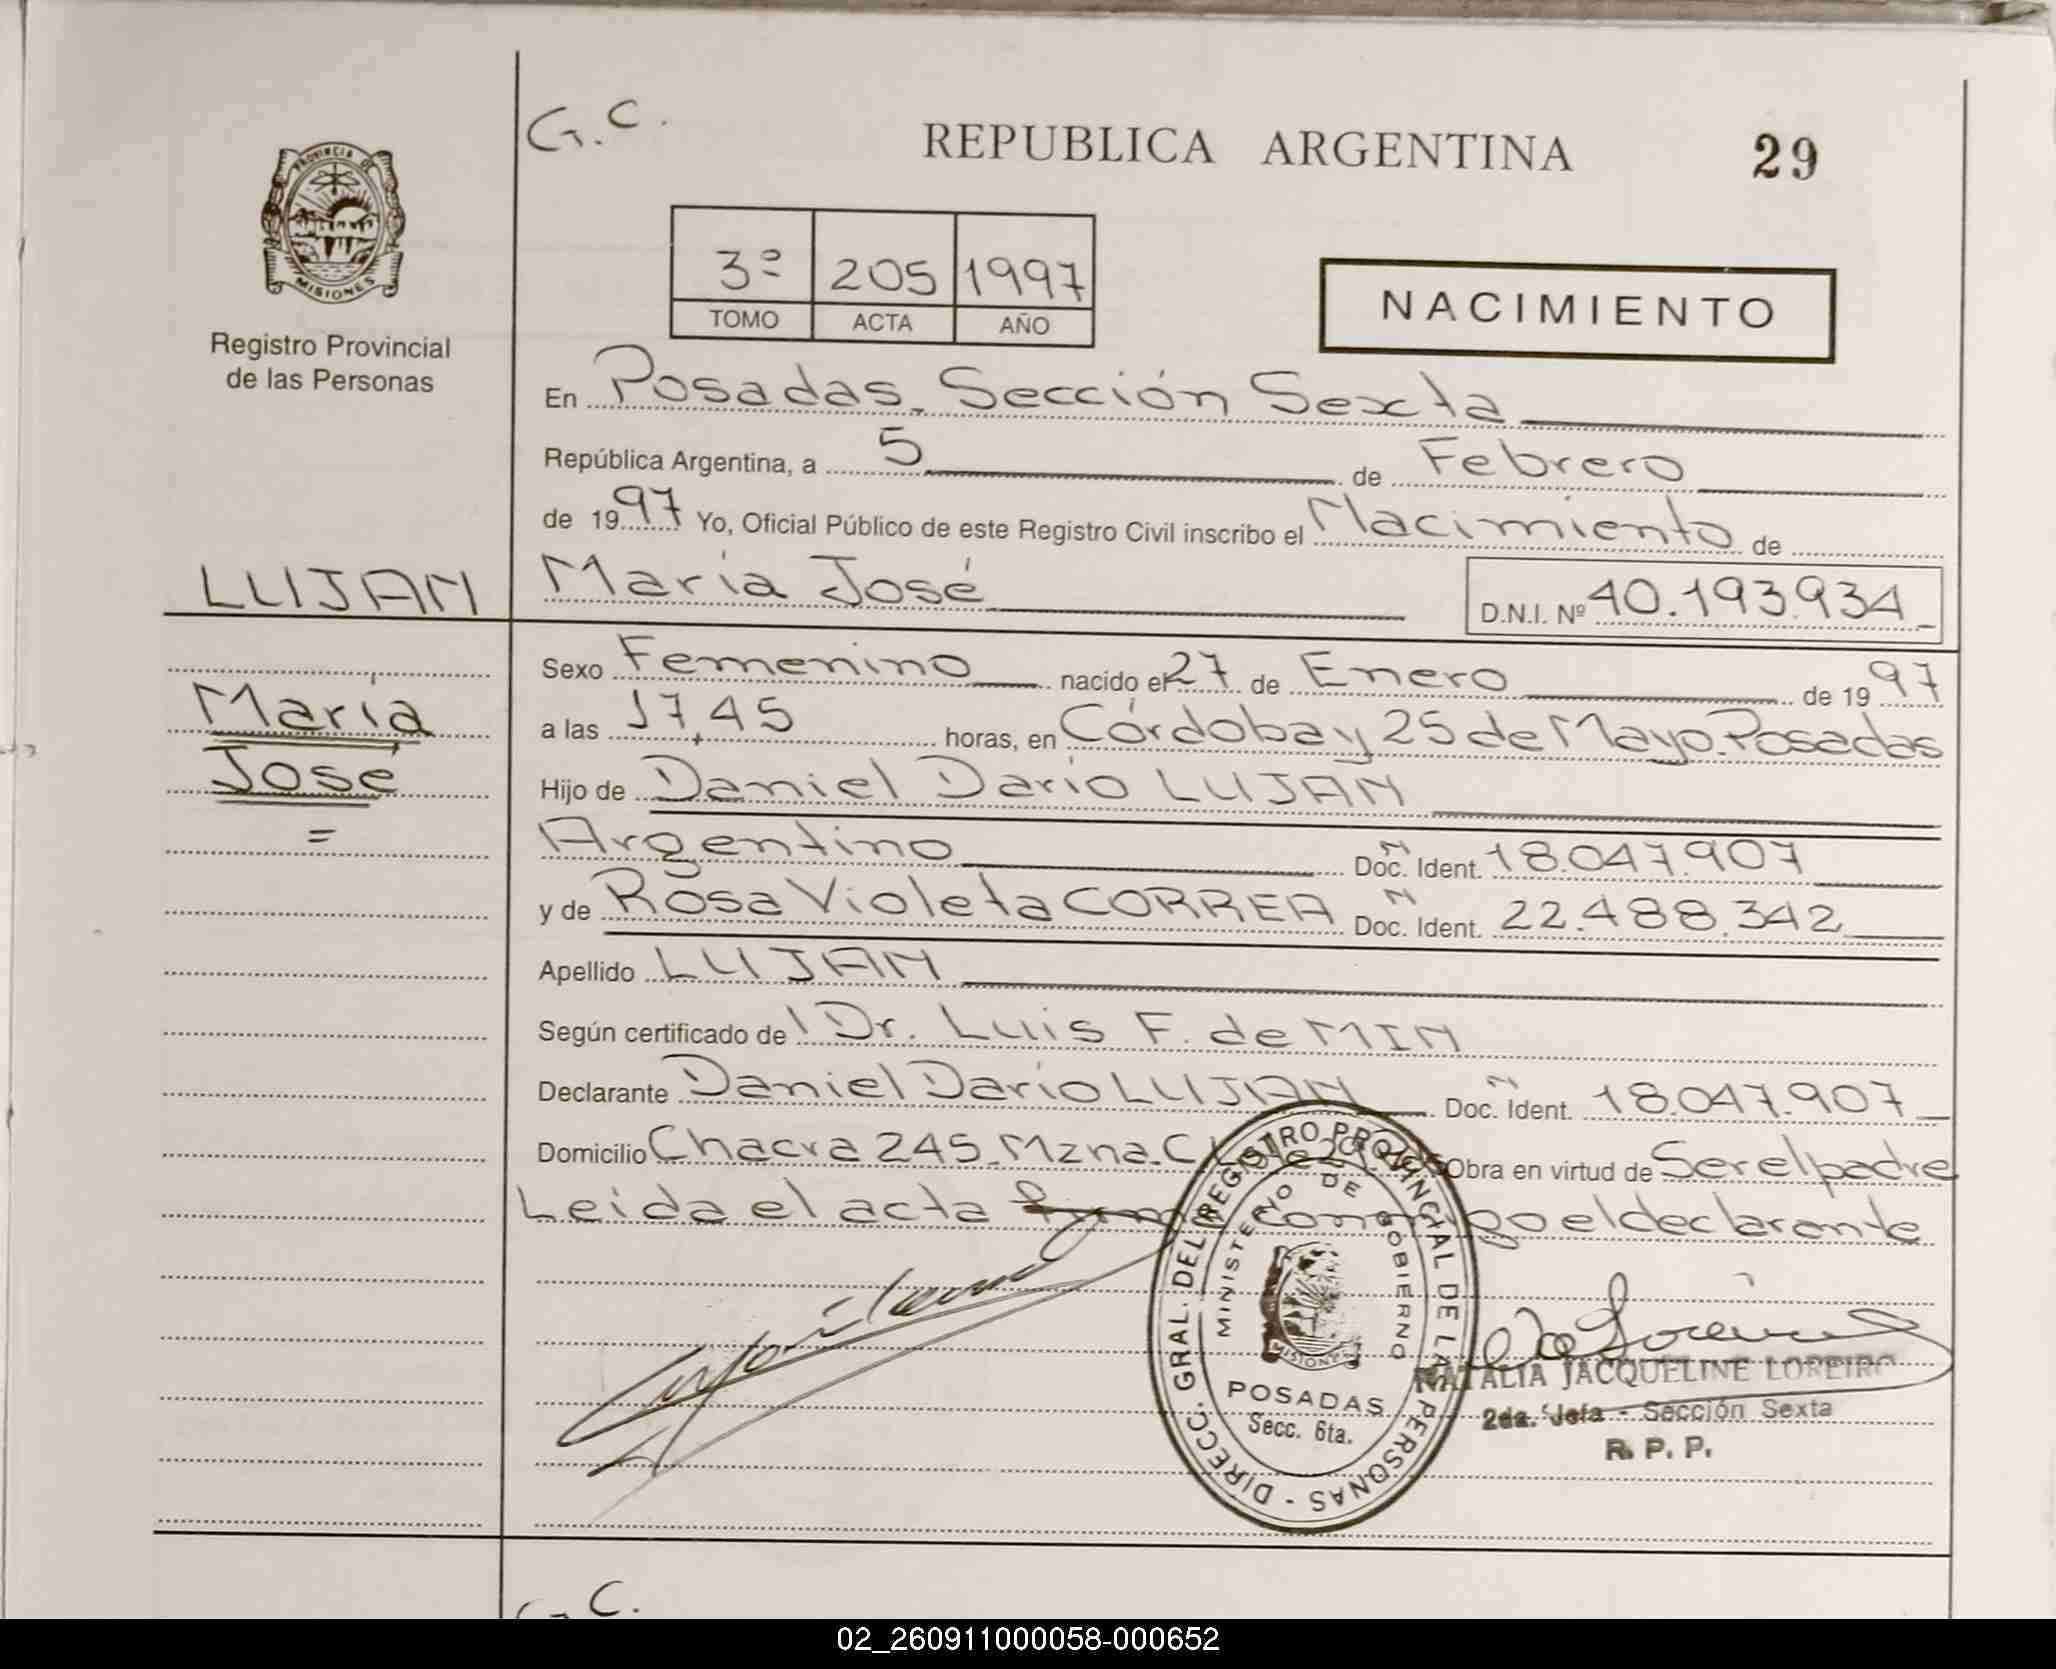 G.C.
REPUBLICA ARGENTINA
29
PROVINCIA DE
MISIONES
Registro Provincial
de las Personas
3º 205 1997
TOMO ACTA AÑO
NACIMIENTO
En Posadas. Sección Sexta
República Argentina, a 5 de Febrero
de 1997 Yo, Oficial Público de este Registro Civil inscribo el Nacimiento de
LUJAN María José D.N.I. Nº 40.193.934
María
José
=
Sexo Femenino nacido el 27 de Enero de 1997
a las 17,45 horas, en Córdoba y 25 de Mayo. Posadas
Hijo de Daniel Darío LUJAN
Argentino Doc. Ident. 18.047.907
y de Rosa Violeta CORREA Doc. Ident. 22.488.342
Apellido LUJAN
Según certificado de Dr. Luis F. de MIN
Declarante Daniel Darío LUJAN Doc. Ident. 18.047.907
Domicilio Chacra 245. Mzna. C Obra en virtud de Ser el padre
Leida el acta firma conmigo el declarante
DIRECC. GRAL. DEL REGISTRO PROVINCIAL DE LAS PERSONAS -
MINISTERIO DE GOBIERNO
MISIONES
POSADAS
Secc. 6ta.
NATALIA JACQUELINE LOREIRO
2da. Jefa - Sección Sexta
R. P. P.
G.C.
02_260911000058-000652